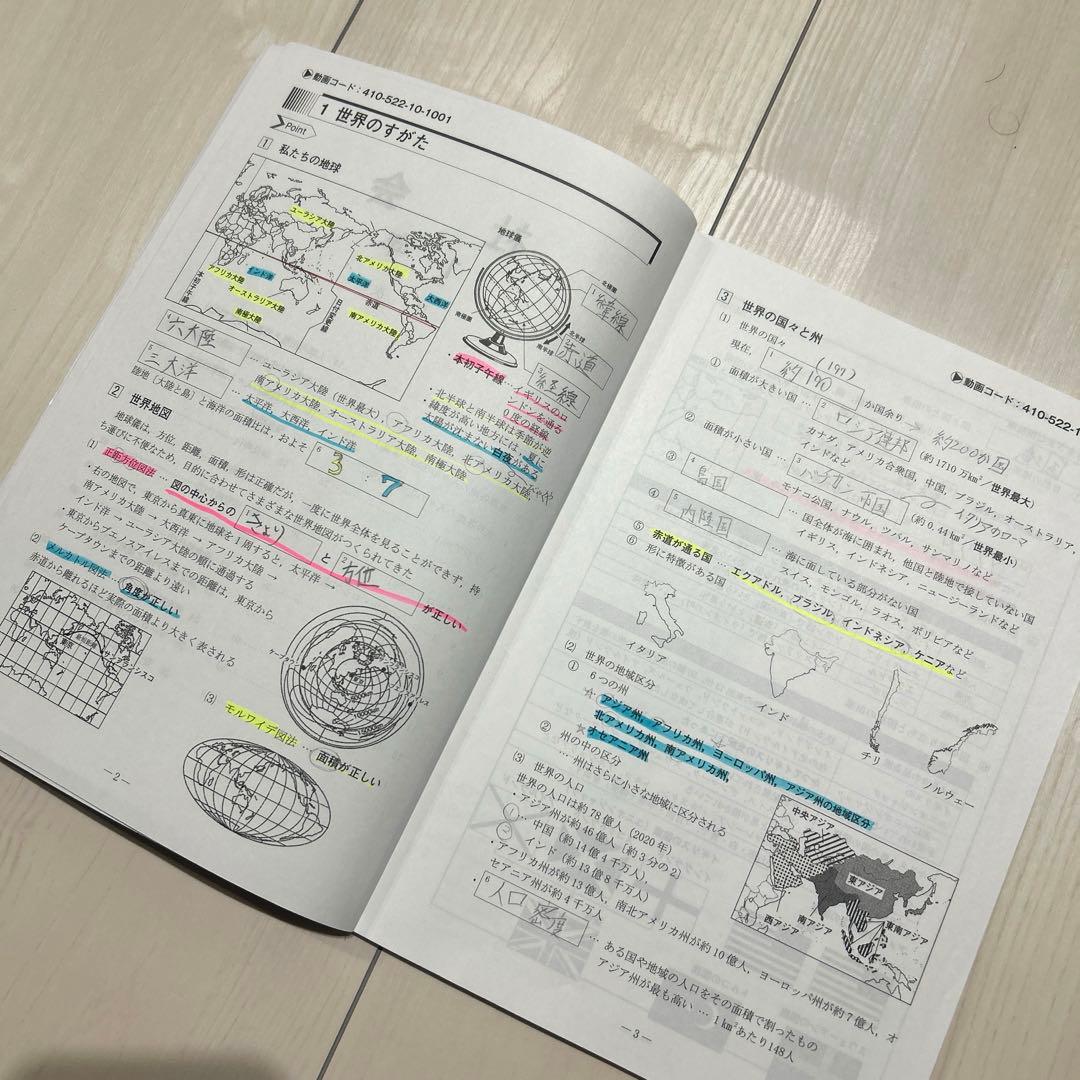 動画コード：410-522-10-1001
1 世界のすがた
Point
1 私たちの地球
ユーラシア大陸
北アメリカ大陸
アフリカ大陸
インド洋
太平洋
大西洋
オーストラリア大陸
赤道
南極大陸
南アメリカ大陸
本初子午線
日付変更線
地球儀
北極圏
1 緯線
南極圏
北半球
南半球
2 赤道
3 経線
・本初子午線…イギリスのロンドンを通る0度の経線
・北半球と南半球は季節が逆
緯度が高い地方には、夏に太陽が沈まない白夜がある
六大陸
… ユーラシア大陸（世界最大），アフリカ大陸，北アメリカ大陸，
南アメリカ大陸，オーストラリア大陸，南極大陸
5 三大洋
… 太平洋，大西洋，インド洋
陸地（大陸と島）と海洋の面積比は，およそ 6 3 : 7
2 世界地図
地球儀は，方位，距離，面積，形は正確だが，一度に世界全体を見ることができず，持
ち運びに不便なため，目的に合わせてさまざまな世界地図がつくられてきた
(1) 正距方位図法 … 図の中心からの 1 きょり と 2 方位 が正しい
・右の地図で，東京から真東に地球を1周すると，太平洋→
南アメリカ大陸 → 大西洋 → アフリカ大陸 →
インド洋 → ユーラシア大陸の順に通過する
・東京からブエノスアイレスまでの距離は，東京から
ケープタウンまでの距離より遠い
(2) メルカトル図法 … 角度が正しい
赤道から離れるほど実際の面積より大きく表される
東京
サンフランシスコ
(3) モルワイデ図法 … 面積が正しい
―2―
動画コード：410-522-1
3 世界の国々と州
(1) 世界の国々
現在， 1 約190 (197) か国余り
約200か国
① 面積が大きい国 … 2 ロシア連邦 （約1710万km²／世界最大）
カナダ，アメリカ合衆国，中国，ブラジル，オーストラリア，
インドなど
② 面積が小さい国 … 3 バチカン市国 （約0.44km²／世界最小）
イタリアのローマ
モナコ公国，ナウル，ツバル，サンマリノなど
③ 4 島国 … 国全体が海に囲まれ，他国と陸地で接していない国
イギリス，インドネシア，ニュージーランドなど
④ 5 内陸国 … 海に面している部分がない国
スイス，モンゴル，ラオス，ボリビアなど
⑤ 赤道が通る国 … エクアドル，ブラジル，インドネシア，ケニアなど
⑥ 形に特徴がある国
イタリア
インド
チリ
ノルウェー
(2) 世界の地域区分
① 6つの州
アジア州，アフリカ州，ヨーロッパ州，
北アメリカ州，南アメリカ州，
オセアニア州
アジア州の地域区分
② 州の中の区分
… 州はさらに小さな地域に区分される
中央アジア
東アジア
西アジア
南アジア
東南アジア
(3) 世界の人口
世界の人口は約78億人（2020年）
・アジア州が約46億人［約3分の2］
① 中国（約14億4千万人），
② インド（約13億8千万人）
・アフリカ州が約13億人，南北アメリカ州が約10億人，ヨーロッパ州が約7億人，オ
セアニア州が約4千万人
・ 6 人口密度 … ある国や地域の人口をその面積で割ったもの
アジア州が最も高い … 1km²あたり148人
―3―